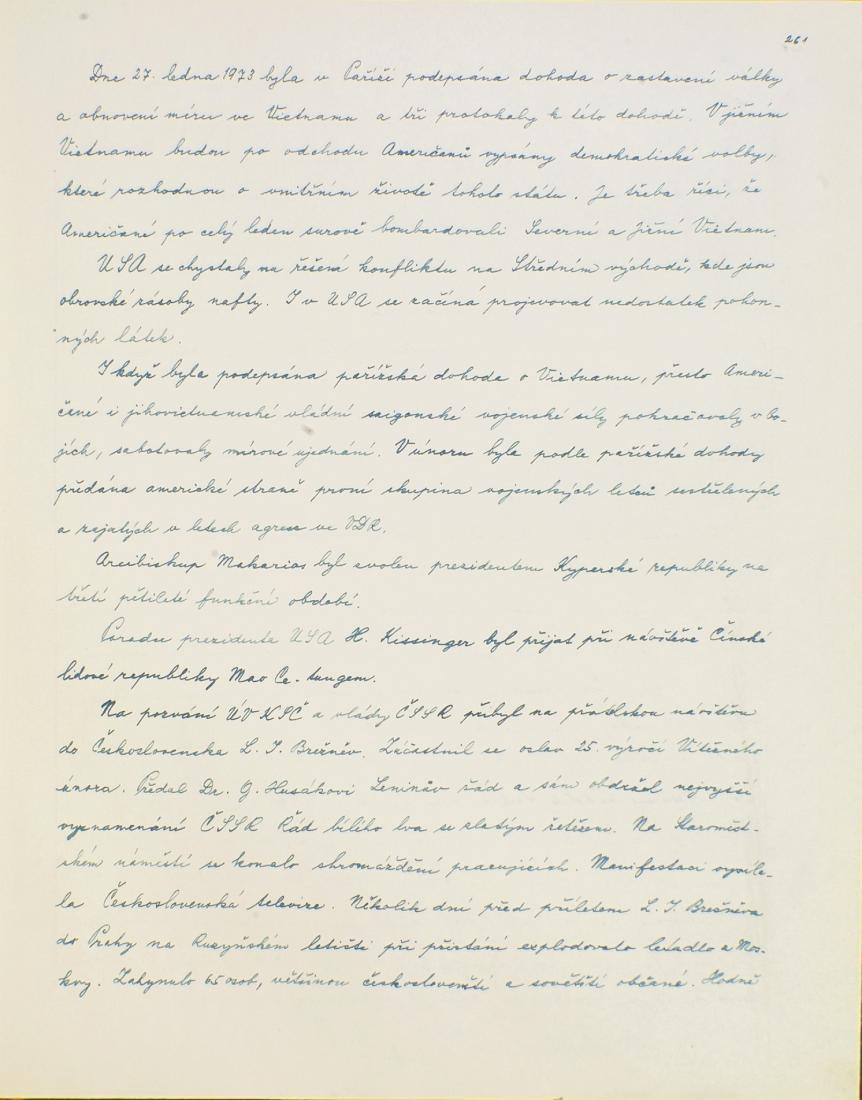 261
Dne 27. ledna 1973 byla v Paříži podepsána dohoda o zastavení války
a obnovení míru ve Vietnamu a tři protokoly k této dohodě. V jižním
Vietnamu budou po odchodu Američanů vypsány demokratické volby,
které rozhodnou o vnitřním životě tohoto státu. Je třeba říci, že
Američané po celý leden surově bombardovali Severní a Jižní Vietnam.
USA se chystaly na řešení konfliktu na Středním východě, kde jsou
obrovské zásoby nafty. I v USA se začíná projevovat nedostatek pohon-
ných látek.
I když byla podepsána pařížská dohoda o Vietnamu, přesto Ameri-
čané i jihovietnamské vládní saigonské vojenské síly pokračovaly v bo-
jích, sabotovaly mírové ujednání. V únoru byla podle pařížské dohody
předána americké straně první skupina vojenských letců sestřelených
a zajatých v letech agrese ve VDR.
Arcibiskup Makarios byl zvolen prezidentem Kyperské republiky na
třetí pětileté funkční období.
Poradce prezidenta USA H. Kissinger byl přijat při návštěvě Čínské
lidové republiky Mao Ce-tungem.
Na pozvání ÚV KSČ a vlády ČSSR přibyl na přátelskou návštěvu
do Československa L. I. Brežněv. Zúčastnil se oslav 25. výročí Vítězného
února. Předal Dr. G. Husákovi Leninův řád a sám obdržel nejvyšší
vyznamenání ČSSR Řád bílého lva se zlatým řetězem. Na Staroměst-
ském náměstí se konalo shromáždění pracujících. Manifestaci vysíla-
la Československá televize. Několik dní před příletem L. I. Brežněva
do Prahy na Ruzyňském letišti při přistání explodovalo letadlo z Mos-
kvy. Zahynulo 65 osob, většinou českoslovenští a sovětští občané. Hodně